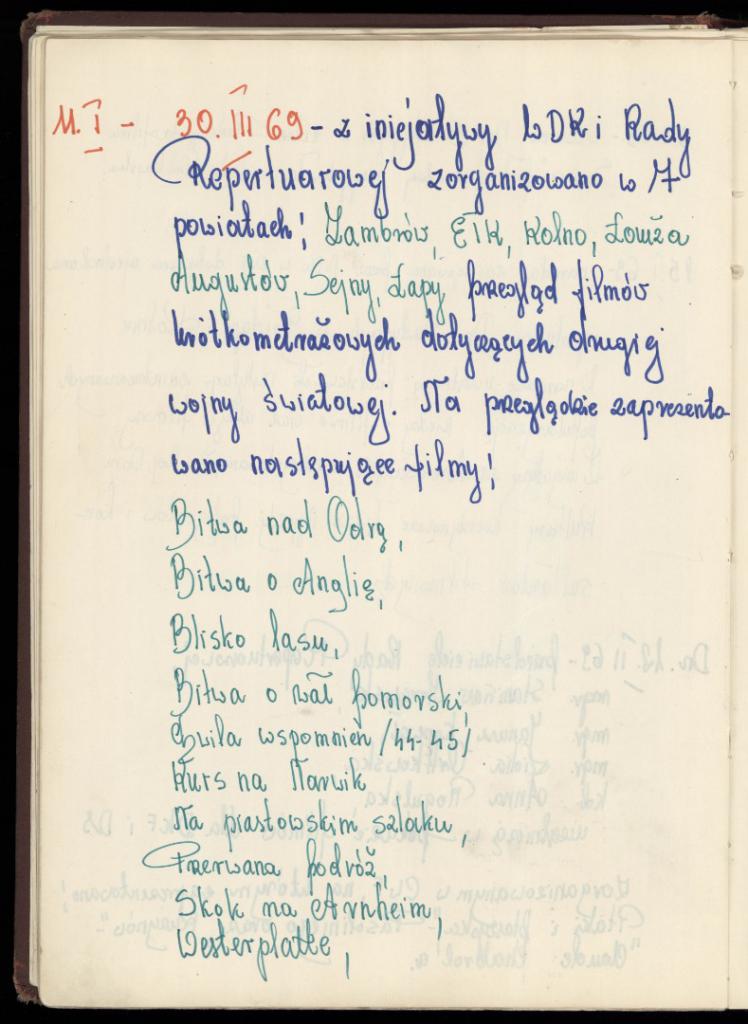 11. I - 30. III 69 - z iniejatywy WDK i Rady
Repertuarowej zorganizowano w 7
powiatach; Zambrów, Ełk, Kolno, Łomża
Augustów, Sejny, Łapy przegląd filmów
krótkometrażowych dotyczących drugiej
wojny światowej. Na przeglądzie zaprezento
wano następujące filmy;
Bitwa nad Odrą,
Bitwa o Anglię,
Blisko lasu,
Bitwa o wał pomorski,
Chwila wspomnień /44-45/
Kurs na Narwik
Na piastowskim szlaku,
Przerwana podróż,
Skok na Arnheim,
Westerplatte,